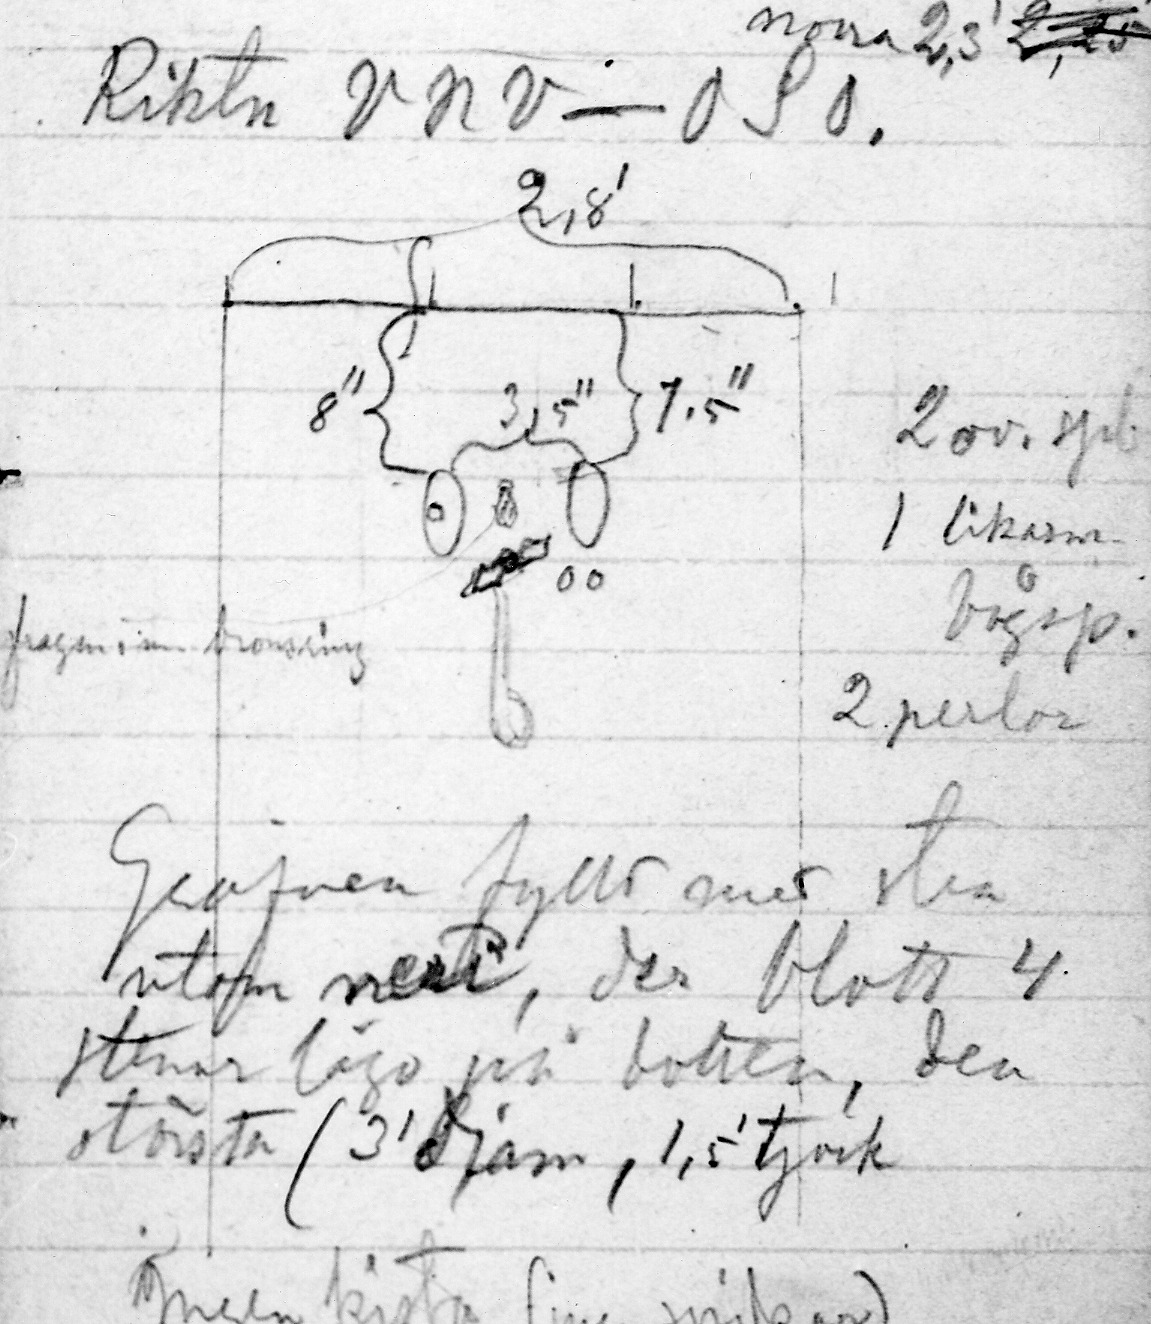 norra 2,3'
Riktn VNV — OSO.
2,8'
8" 3,5" 7.5"
2 ov. sp
1 likarm
bågsp.
fragm. bronsring
2 perlor
Grafven fylld med sten
utom, der blott 4
stenar lågo på botten, den
största (3' djam, 1,5' tjock
Ingen kista